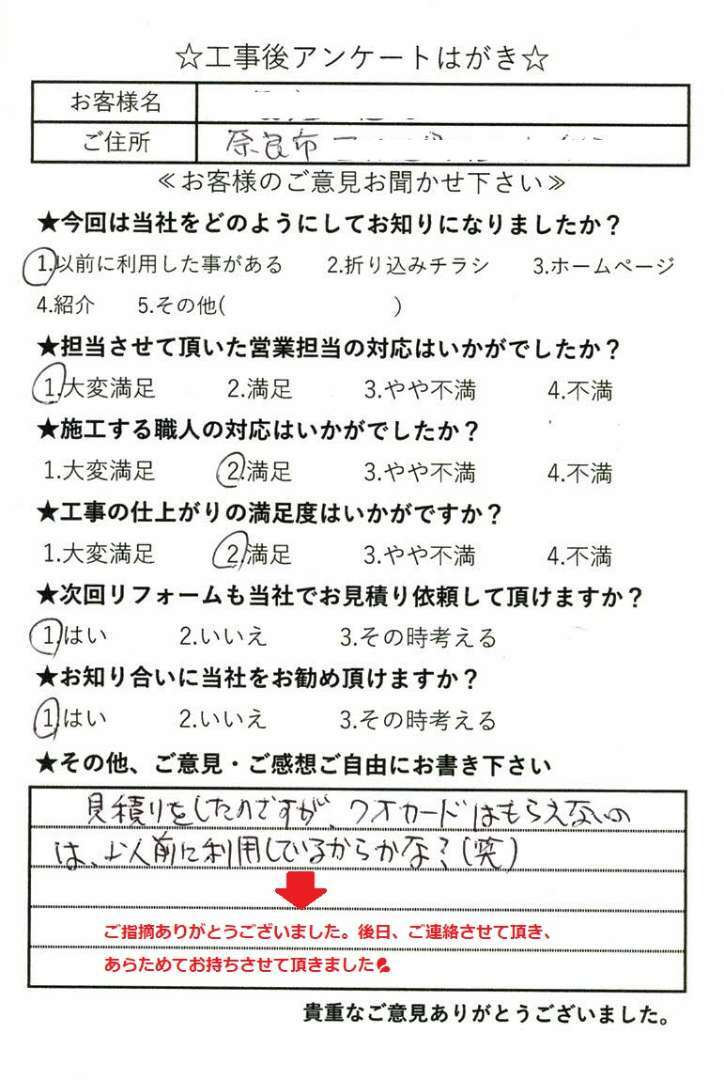 ☆工事後アンケートはがき☆
お客様名
ご住所 奈良市
≪お客様のご意見お聞かせ下さい≫
★今回は当社をどのようにしてお知りになりましたか？
1.以前に利用した事がある 2.折り込みチラシ 3.ホームページ
4.紹介 5.その他( )
★担当させて頂いた営業担当の対応はいかがでしたか？
1.大変満足 2.満足 3.やや不満 4.不満
★施工する職人の対応はいかがでしたか？
1.大変満足 2.満足 3.やや不満 4.不満
★工事の仕上がりの満足度はいかがですか？
1.大変満足 2.満足 3.やや不満 4.不満
★次回リフォームも当社でお見積り依頼して頂けますか？
1.はい 2.いいえ 3.その時考える
★お知り合いに当社をお勧め頂けますか？
1.はい 2.いいえ 3.その時考える
★その他、ご意見・ご感想ご自由にお書き下さい
見積りをしたのですが、クオカードはもらえないの
は、以前に利用しているからかな？(笑)
ご指摘ありがとうございました。後日、ご連絡させて頂き、
あらためてお持ちさせて頂きました
貴重なご意見ありがとうございました。